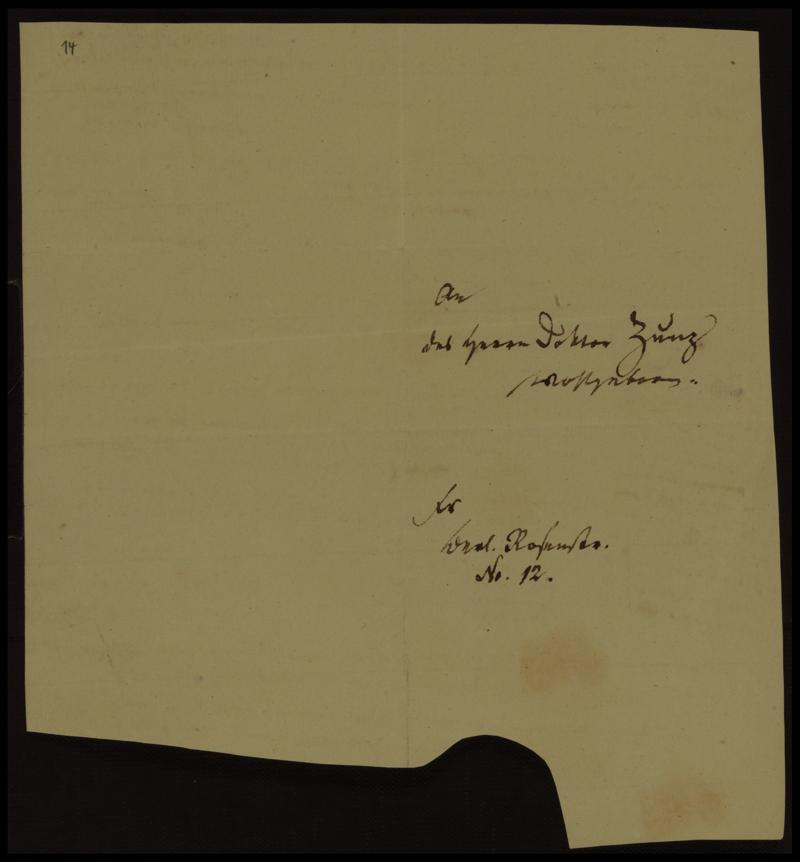 14
An
des Herrn Doktor Zunz
Wohlgeboren.
Fr
Rosenstr.
No. 12.